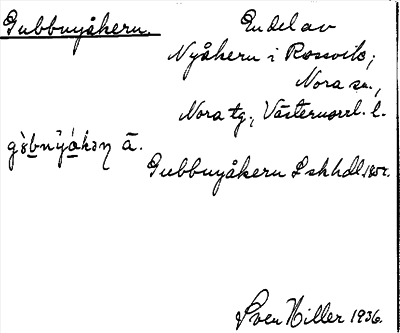 Gubbnyåkern.
En del av
Nyåkern i Rossvik,
Nora sn.,
Nora tg., Västernorrl. l.
Gubbnyåkern Lskhdl
Sven Hiller 1936.